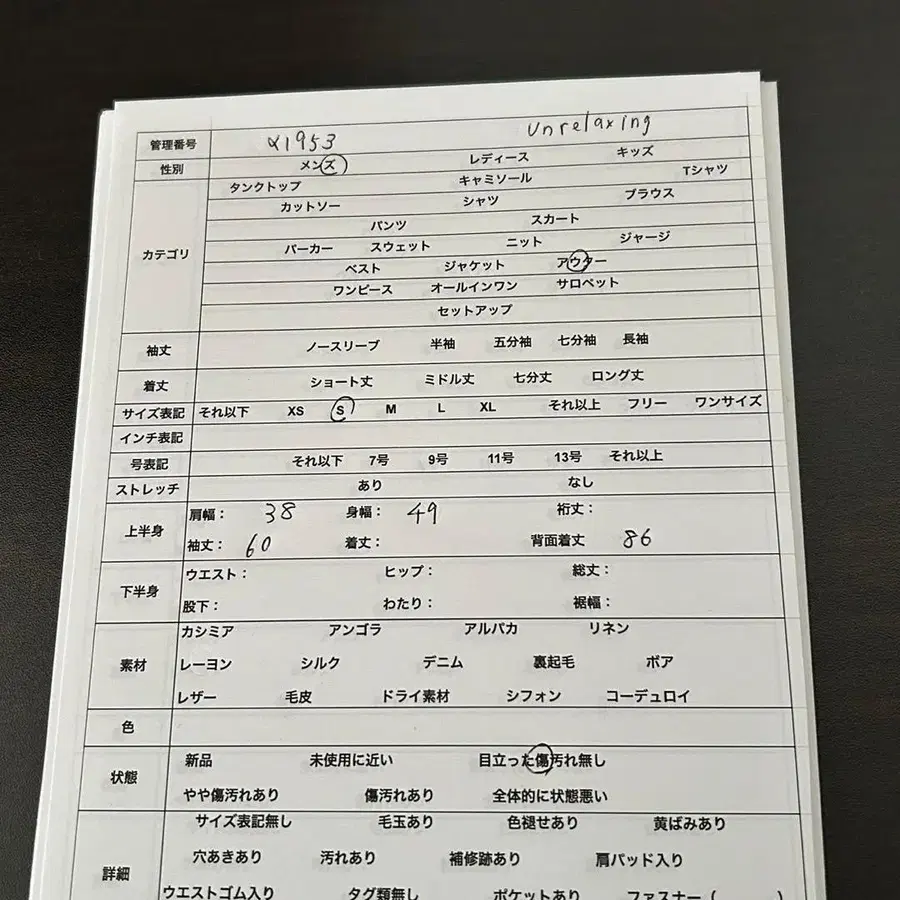 管理番号 α1953 unrelaxing
性別 メンズ レディース キッズ
カテゴリ
タンクトップ キャミソール Tシャツ
カットソー シャツ ブラウス
パンツ スカート
パーカー スウェット ニット ジャージ
ベスト ジャケット アウター
ワンピース オールインワン サロペット
セットアップ
袖丈 ノースリーブ 半袖 五分袖 七分袖 長袖
着丈 ショート丈 ミドル丈 七分丈 ロング丈
サイズ表記 それ以下 XS S M L XL それ以上 フリー ワンサイズ
インチ表記
号表記 それ以下 7号 9号 11号 13号 それ以上
ストレッチ あり なし
上半身
肩幅： 38 身幅： 49 裄丈：
袖丈： 60 着丈： 背面着丈 86
下半身
ウエスト： ヒップ： 総丈：
股下： わたり： 裾幅：
素材
カシミア アンゴラ アルパカ リネン
レーヨン シルク デニム 裏起毛 ボア
レザー 毛皮 ドライ素材 シフォン コーデュロイ
色
状態
新品 未使用に近い 目立った傷汚れ無し
やや傷汚れあり 傷汚れあり 全体的に状態悪い
詳細
サイズ表記無し 毛玉あり 色褪せあり 黄ばみあり
穴あきあり 汚れあり 補修跡あり 肩パッド入り
ウエストゴム入り タグ類無し ポケットあり ファスナー ( )